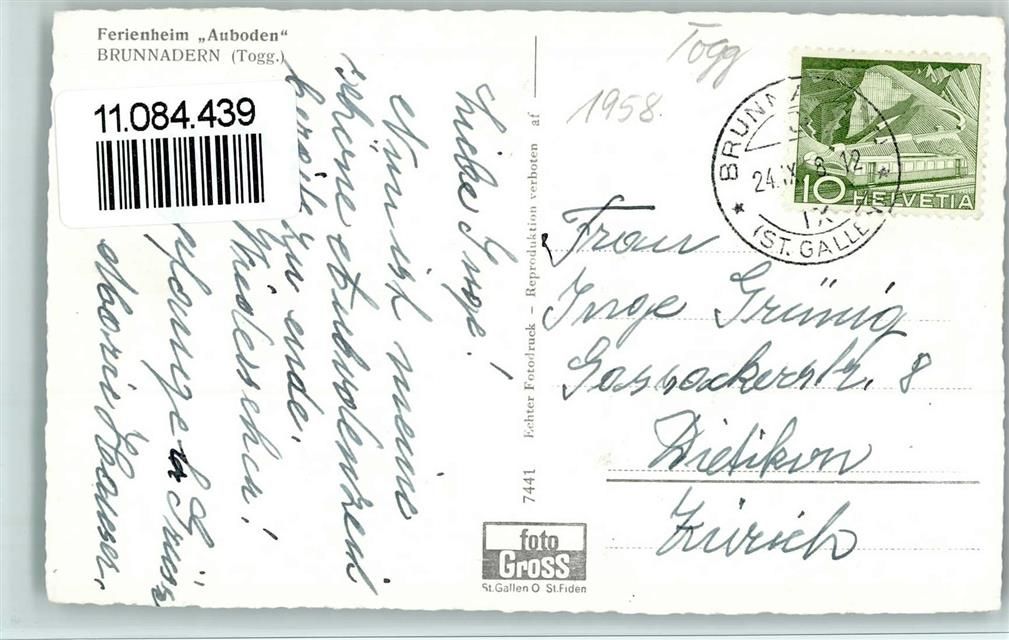 Ferienheim „Auboden“
BRUNNADERN (Togg.)
11.084.439
Togg
1958
BRUNNADERN
24.IX. 8-12
IX
(ST. GALLEN)
10 HELVETIA
Liebe Inge!
Nun ist meine
schöne Aubodenzeit
bereits zu ende.
Wiedersehen!
Grüss
Hauser.
7441 Echter Fotodruck - Reproduktion verboten af
Frau
Inge Grünig
Gassackerstr. 8
Dietikon
Zürich
foto
Gross
St.Gallen O St.Fiden